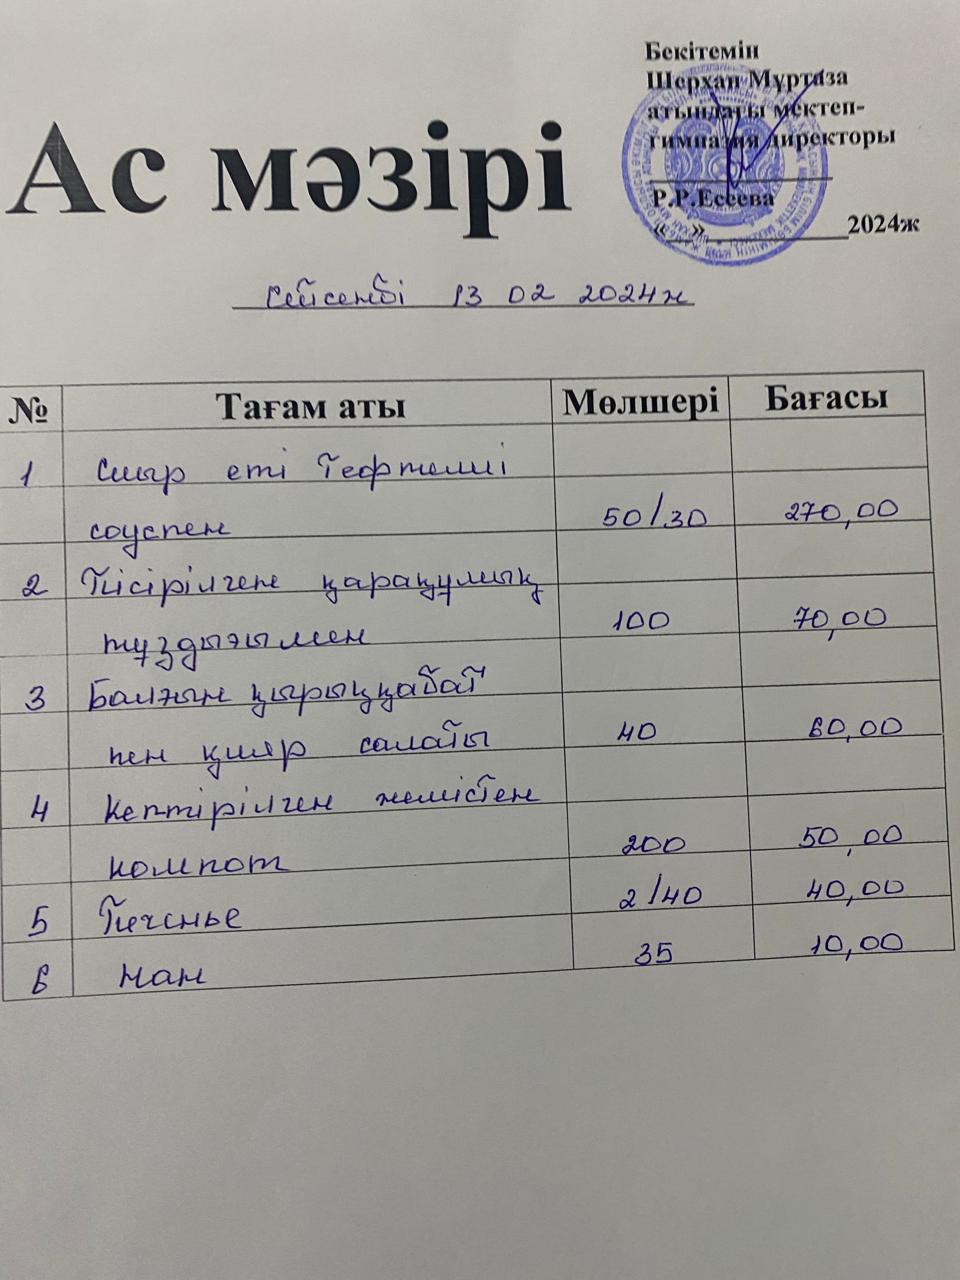 Бекітемін
Шерхан Мұртаза
атындағы мектеп-
гимназия директоры
Р.Р.Есеева
«__»___________2024ж
Ас мәзірі
Сейсенбі 13 02 2024ж
№ Тағам аты Мөлшері Бағасы
1 Сиыр еті Тефтелиі
соуспен 50/30 270,00
2 Пісірілген қарақұмық
тұздығымен 100 70,00
3 Балғын қырыққабат
пен қияр салаты 40 60,00
4 Кептірілген жемістен
компот 200 50,00
5 Печенье 2/40 40,00
6 Нан 35 10,00